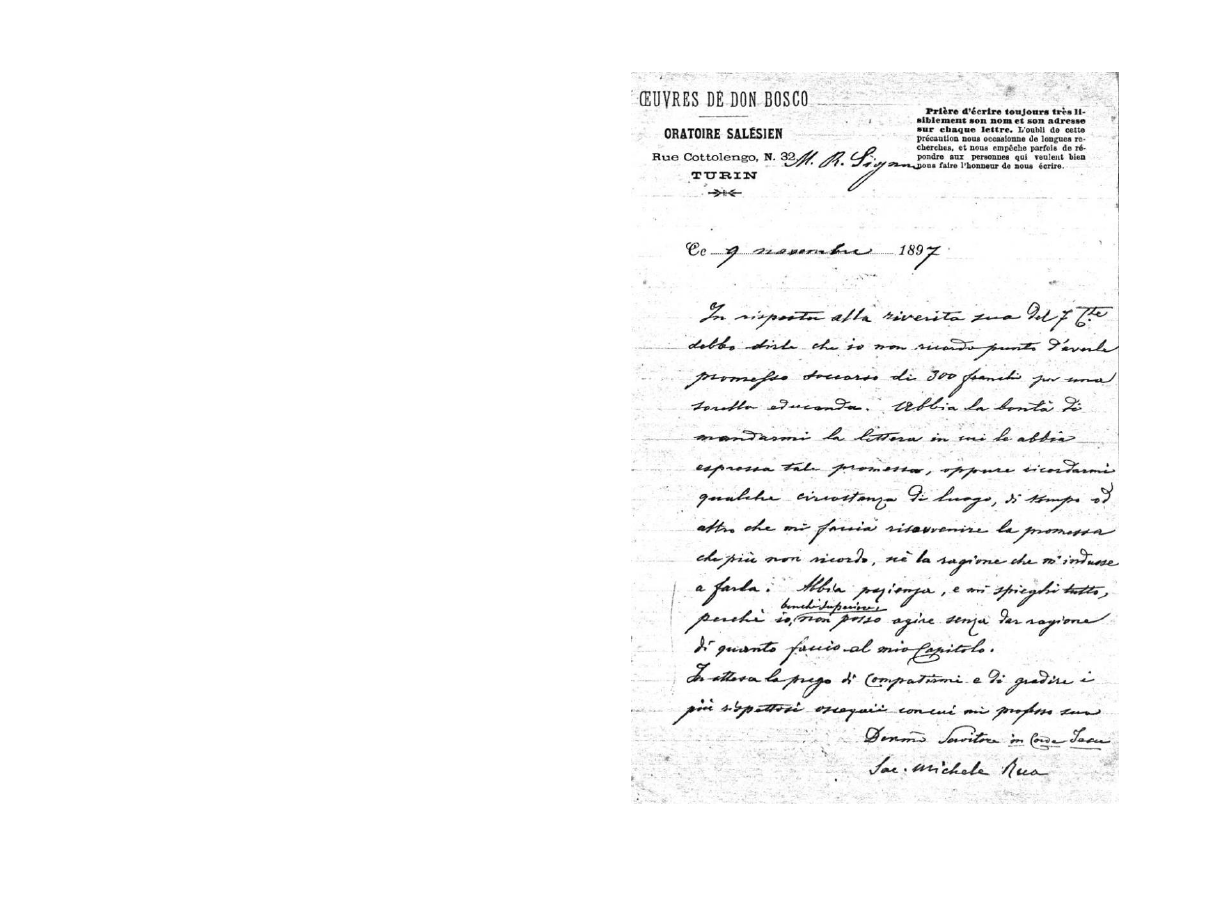 ŒUVRES DE DON BOSCO
ORATOIRE SALÉSIEN
Rue Cottolengo, N. 32
TURIN
Prière d'écrire toujours très li-
siblement son nom et son adresse
sur chaque lettre. L'oubli de cette
précaution nous occasionne de longues re-
cherches, et nous empêche parfois de ré-
pondre aux personnes qui veulent bien
nous faire l'honneur de nous écrire.
M. R. Signore
Ce 9 novembre 1897
In risposta alla riverita sua del 7 Cte
debbo dirle che io non ricordo punto d'averle
promesso soccorso di 300 franchi per una
sorella educanda. Abbia la bontà di
mandarmi la lettera in cui le abbia
espressa tale promessa, oppure ricordarmi
qualche circostanza di luogo, di tempo od
altro che mi faccia risovvenire la promessa
che più non ricordo, nè la ragione che m'indusse
a farla. Abbia pazienza, e mi spieghi tutto,
perchè io, benchè superiore, non posso agire senza dar ragione
di quanto faccio al mio Capitolo.
In attesa la prego di compatirmi e di gradire i
più rispettosi ossequii con cui mi professo suo
Devmo Servitore in Corde Jesu
Sac. Michele Rua